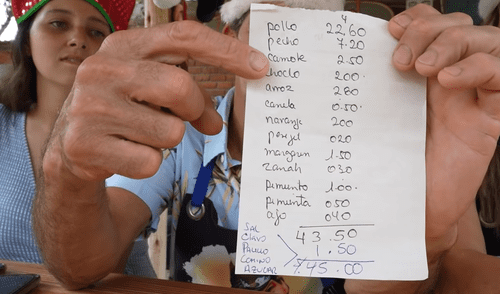 4
pollo 22,60
pecho 7.20
camote 2.50
choclo 200.
arroz 280
canela 0.50.
naranja 200
perejil 020
maracuya 1.50
zanah 030
pimiento 1.00.
pimienta 050
ajo 040
43.50
SAL
CLAVO 1.50
PALILLO
COMINO S/.45.00
AZUCAR